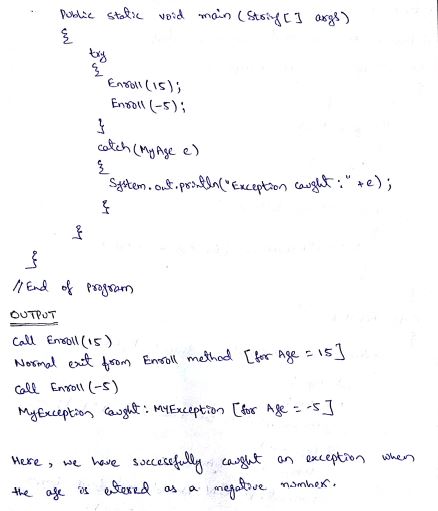 Public static void main (String [ ] args)
{
try
{
Enroll (15);
Enroll (-5);
}
catch (MyAge e)
{
System.out.println("Exception caught :" +e);
}
}
}
// End of program
OUTPUT
Call Enroll (15)
Normal exit from Enroll method [for Age = 15]
Call Enroll (-5)
MyException Caught : MYException [for Age = -5]
Here, we have successfully caught an exception when
the age is entered as a negative number.